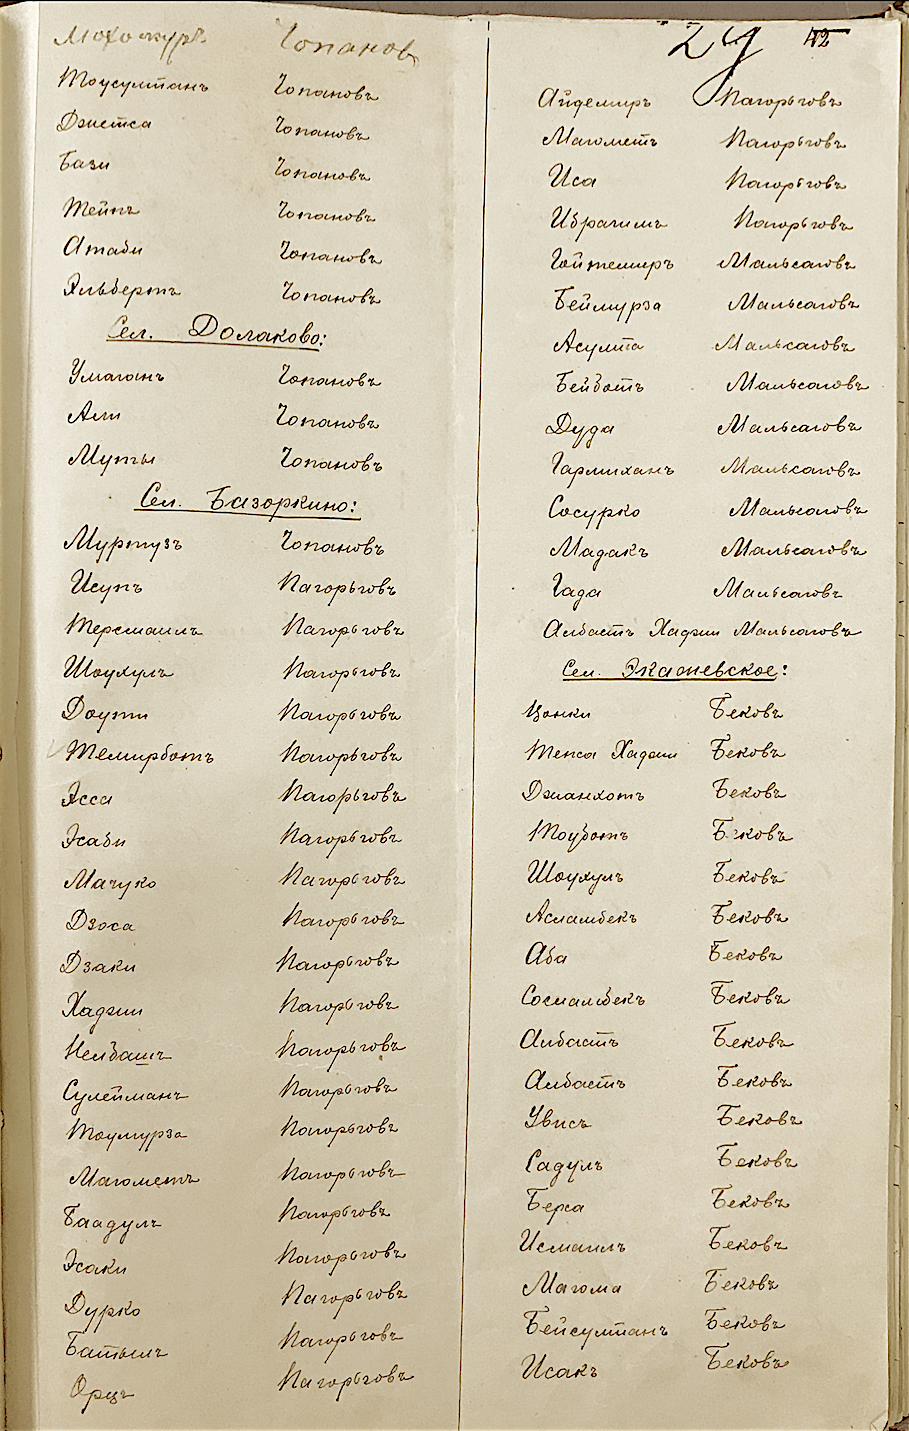 Мохомуръ Чопановъ
Тоусултанъ Чопановъ
Джетса Чопановъ
Бази Чопановъ
Тейпъ Чопановъ
Атаби Чопановъ
Эльбертъ Чопановъ
Сел. Долаково:
Умаганъ Чопановъ
Али Чопановъ
Муты Чопановъ
Сел. Базоркино:
Муртузъ Чопановъ
Исупъ Нагорьговъ
Терсмаилъ Нагорьговъ
Шаухулъ Нагорьговъ
Доути Нагорьговъ
Темирботъ Нагорьговъ
Эсса Нагорьговъ
Эсаби Нагорьговъ
Мачуко Нагорьговъ
Дзоса Нагорьговъ
Дзаки Нагорьговъ
Хаджи Нагорьговъ
Нелбашъ Нагорьговъ
Сулейманъ Нагорьговъ
Тоумурза Нагорьговъ
Магометъ Нагорьговъ
Баадулъ Нагорьговъ
Эсаки Нагорьговъ
Дурко Нагорьговъ
Батылъ Нагорьговъ
Орцъ Нагорьговъ
29 42
Айдемиръ Нагорьговъ
Магометъ Нагорьговъ
Иса Нагорьговъ
Ибрагимъ Нагорьговъ
Гойтемиръ Мальсаговъ
Беймурза Мальсаговъ
Асулта Мальсаговъ
Бейботъ Мальсаговъ
Дуда Мальсаговъ
Гармиханъ Мальсаговъ
Сосурко Мальсаговъ
Мадакъ Мальсаговъ
Гада Мальсаговъ
Албастъ Хаджи Мальсаговъ
Сел. Экажевское:
Цонки Бековъ
Тепса Хаджи Бековъ
Джанхотъ Бековъ
Тоуботъ Бековъ
Шоухулъ Бековъ
Асламбекъ Бековъ
Аба Бековъ
Сосламбекъ Бековъ
Албастъ Бековъ
Албастъ Бековъ
Увисъ Бековъ
Садулъ Бековъ
Берса Бековъ
Исмаилъ Бековъ
Магома Бековъ
Бейсултанъ Бековъ
Исакъ Бековъ